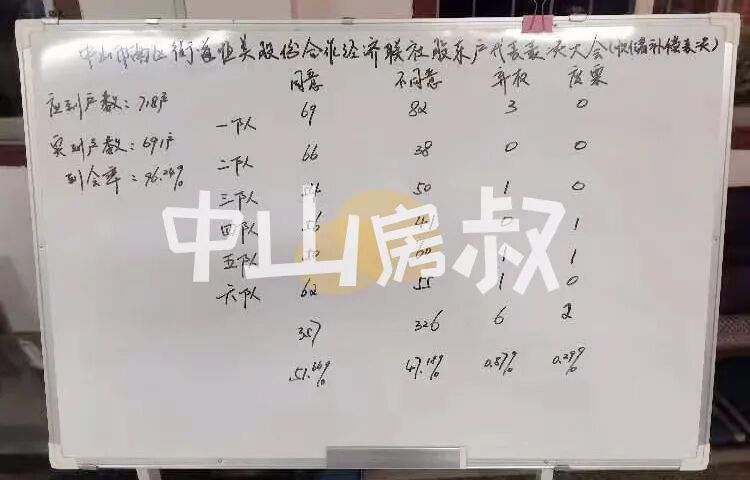 中山市南区街道恒美股份合作经济联社股东户代表表决大会(收储补偿表决)
同意 不同意 弃权 废票
应到户数:718户
一队 69 82 3 0
实到户数:691户
二队 66 38 0 0
到会率:96.24%
三队 54 50 1 0
四队 56 41 0 1
五队 50 60 1 1
六队 62 55 1 0
357 326 6 2
51.66% 47.18% 0.87% 0.29%
中山房叔